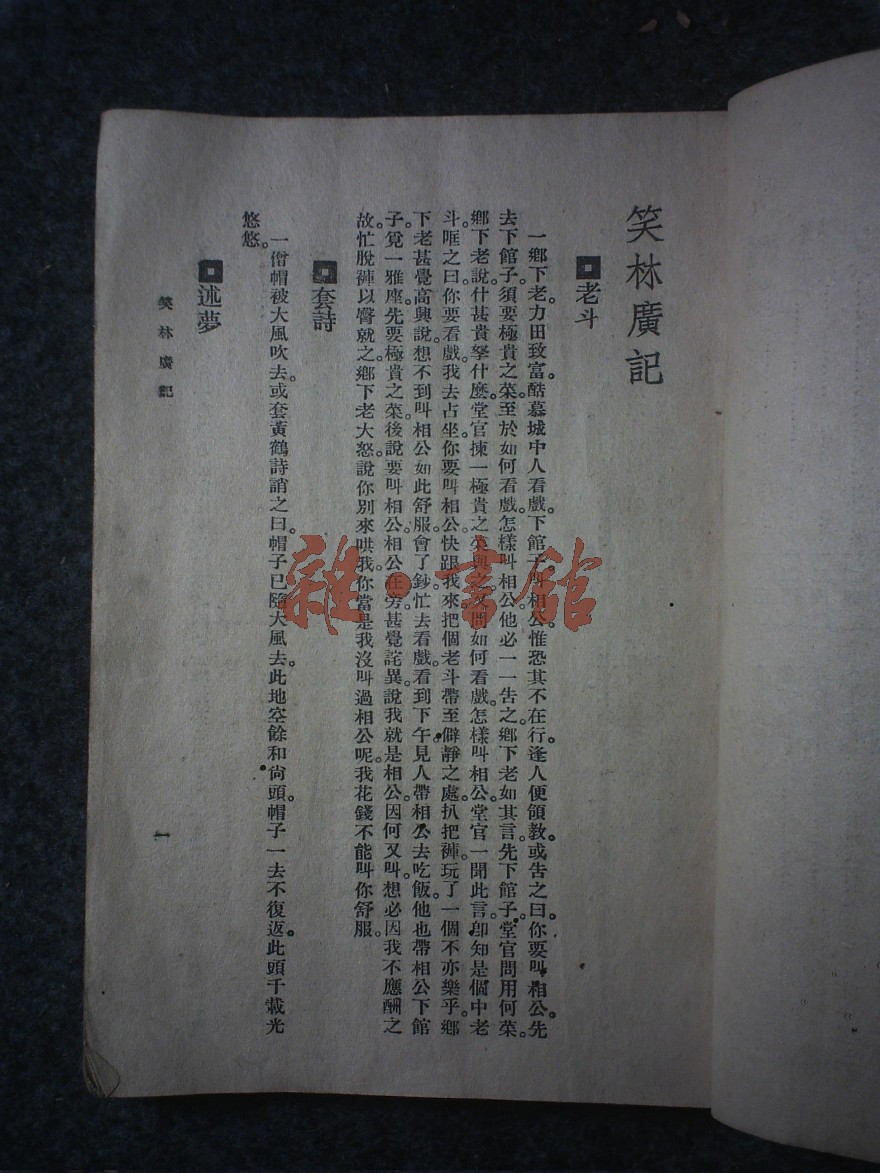 笑林廣記
老斗
一鄉下老。力田致富。酷慕城中人看戲。下館子。叫相公。惟恐其不在行。逢人便領教。或告之曰。你要叫相公。先
去下館子。須要極貴之菜。至於如何看戲。怎樣叫相公。他必一一告之。鄉下老如其言。先下館子。堂官問用何菜。
鄉下老說。什甚貴拏什麼。堂官揀一極貴之菜與之。又問如何看戲。怎樣叫相公。堂官一聞此言。卽知是個中老
斗。誆之曰。你要看戲。我去占坐。你要叫相公。快跟我來。把個老斗帶至僻靜之處。扒把褲。玩了一個不亦樂乎。鄉
下老甚覺高興。說。想不到叫相公如此舒服。會了鈔。忙去看戲。看到下午。見人帶相公去吃飯。他也帶相公下館
子。覓一雅座。先要極貴之菜。後說要叫相公。相公在旁。甚覺詫異。說。我就是相公。因何又叫。想必因我不應酬之
故。忙脫褲以臀就之。鄉下老大怒。說。你別來哄我。你當是我沒叫過相公呢。我花錢不能叫你舒服。
套詩
一僧帽被大風吹去。或套黃鶴詩誚之曰。帽子已隨大風去。此地空餘和尙頭。帽子一去不復返。此頭千載光
悠悠。
述夢
笑林廣記
一
雜·書館